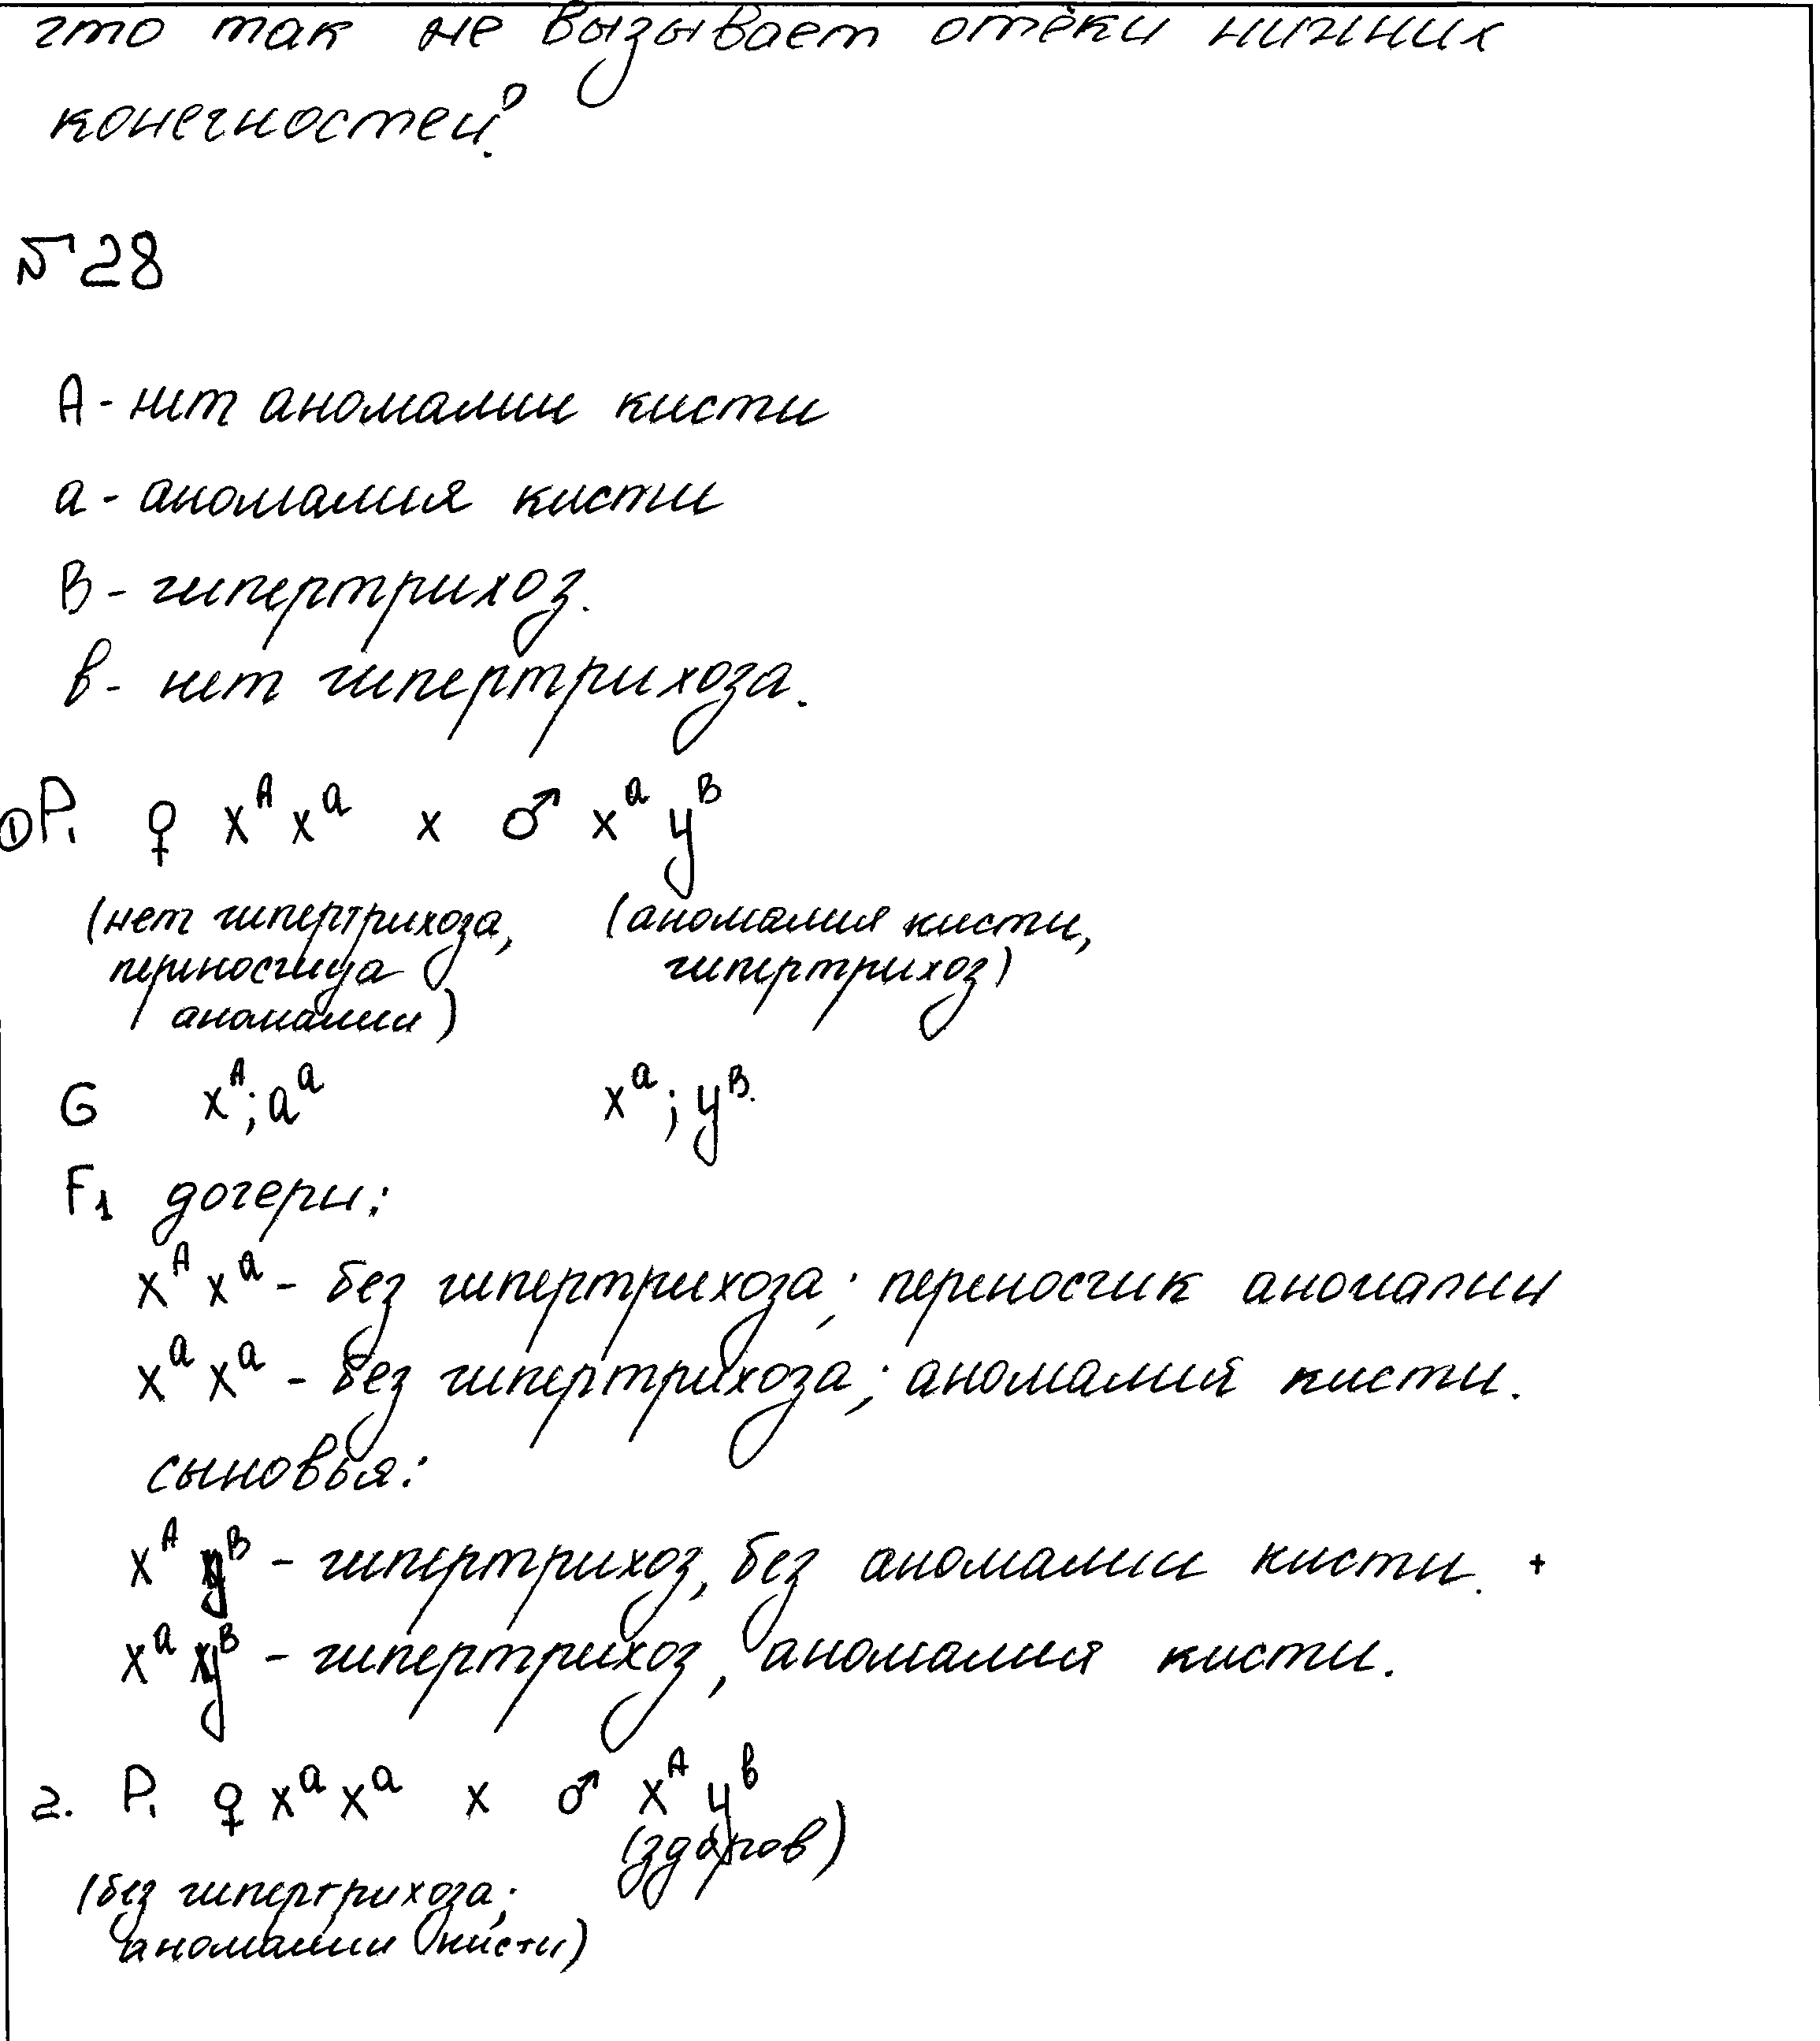 что так не вызывает отёки нижних
конечностей?
№28
A - нет аномалии кисти
a - аномалия кисти
B - гипертрихоз.
в - нет гипертрихоза.
① P₁ ♀ xᴬ xᵃ x ♂ xᵃ yᴮ
(нет гипертрихоза, (аномалия кисти,
переносчица гипертрихоз)
аномалии)
G xᴬ; aᵃ xᵃ; yᴮ.
F₁ дочери:
xᴬ xᵃ - без гипертрихоза; переносчик аномалии
xᵃ xᵃ - без гипертрихоза; аномалия кисти.
сыновья:
xᴬ yᴮ - гипертрихоз, без аномалии кисти. +
xᵃ yᴮ - гипертрихоз, аномалия кисти.
2. P₁ ♀ xᵃ xᵃ x ♂ xᴬ yᵇ
(здоров)
(без гипертрихоза;
аномалии кисти)